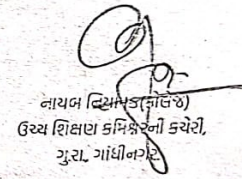 નાયબ નિયામક(કોલેજ)
ઉચ્ચ શિક્ષણ કમિશ્નરની કચેરી,
ગુ.રા. ગાંધીનગર.